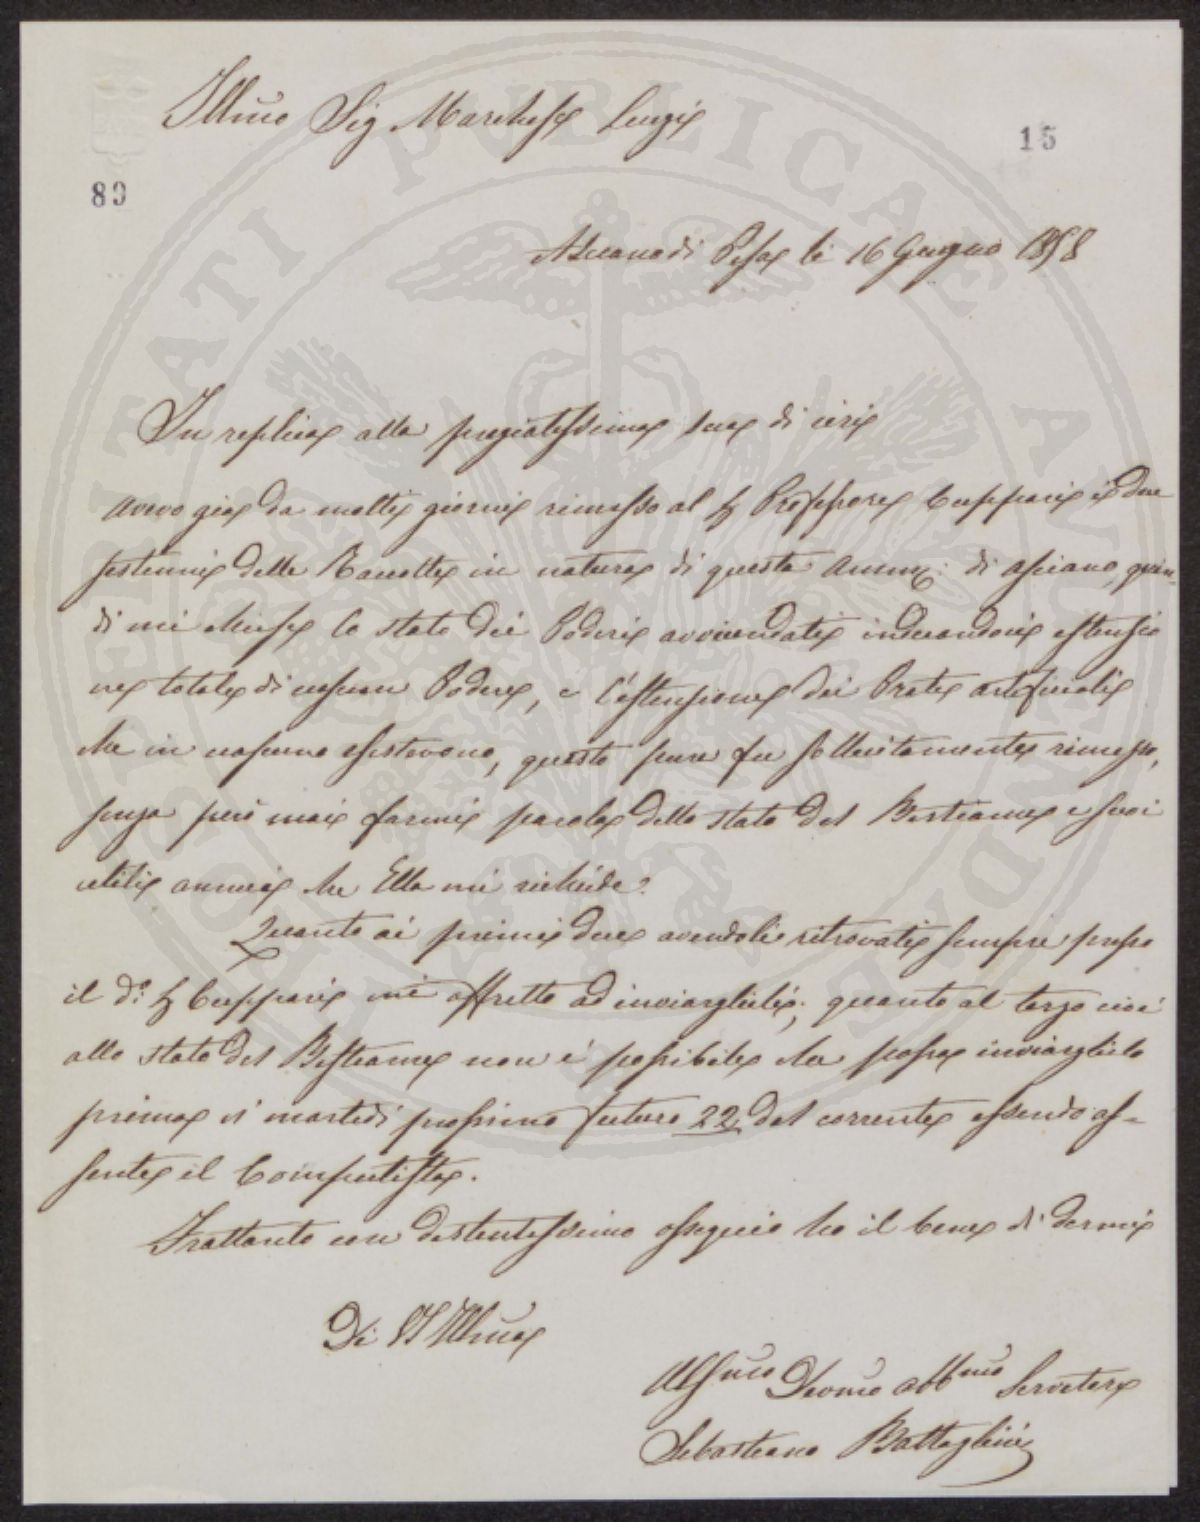 Illmo Sig Marchese Luigi
15
89
Asciano di Pisa li 16 Giugno 1858
In replica alla pregiatissima sua di ieri
avevo gia da molti giorni rimesso al Sg Professore Cuppari i due
settennj delle Raccolte in natura di questa Ammne: di Asciano, quin-
di mi chiese lo stato dei Poderi avvicendati indicandovi estensio
ne totale di ciascun Podere, e l'estensione dei Prati artificiali
che in ciascuno esistevono, questo pure fu sollecitamente rimesso,
senza però mai farmi parola dello stato del Bestiame e suoi
utili annui che Ella mi richiede.
Quanto ai primi due avendoli ritrovati sempre presso
il do: Sg Cuppari mi affretto ad inviarglieli; quanto al terzo cioè
allo stato del Bestiame non è possibile che possa inviarglielo
prima di martedì prossimo futuro 22 del corrente essendo as-
sente il Computista.
Frattanto con distintissimo ossequio ho il bene di dirmi
Di VS Illma
Devmo obbmo Servitore
Sebastiano Battaglini
PUBLICAE